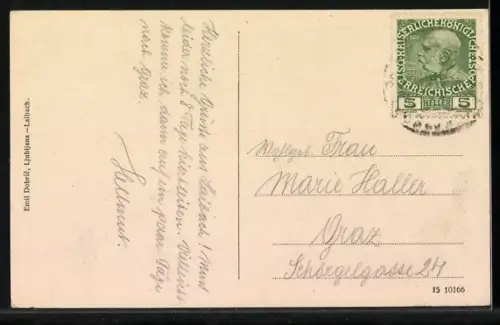 Herzliche Grüße aus Laibach! Muss
leider noch 8 Tage hier bleiben. Vielleicht
komme ich dann auf ein paar Tage
nach Graz.
Hellmut.
Emil Dobrič, Ljubljana—Laibach.
KAISERLICHE KÖNIGLICHE
ÖSTERREICHISCHE POST
5 HELLER 5
Wohlgeb. Frau
Marie Haller
Graz
Schörgelgasse 24
15 10166